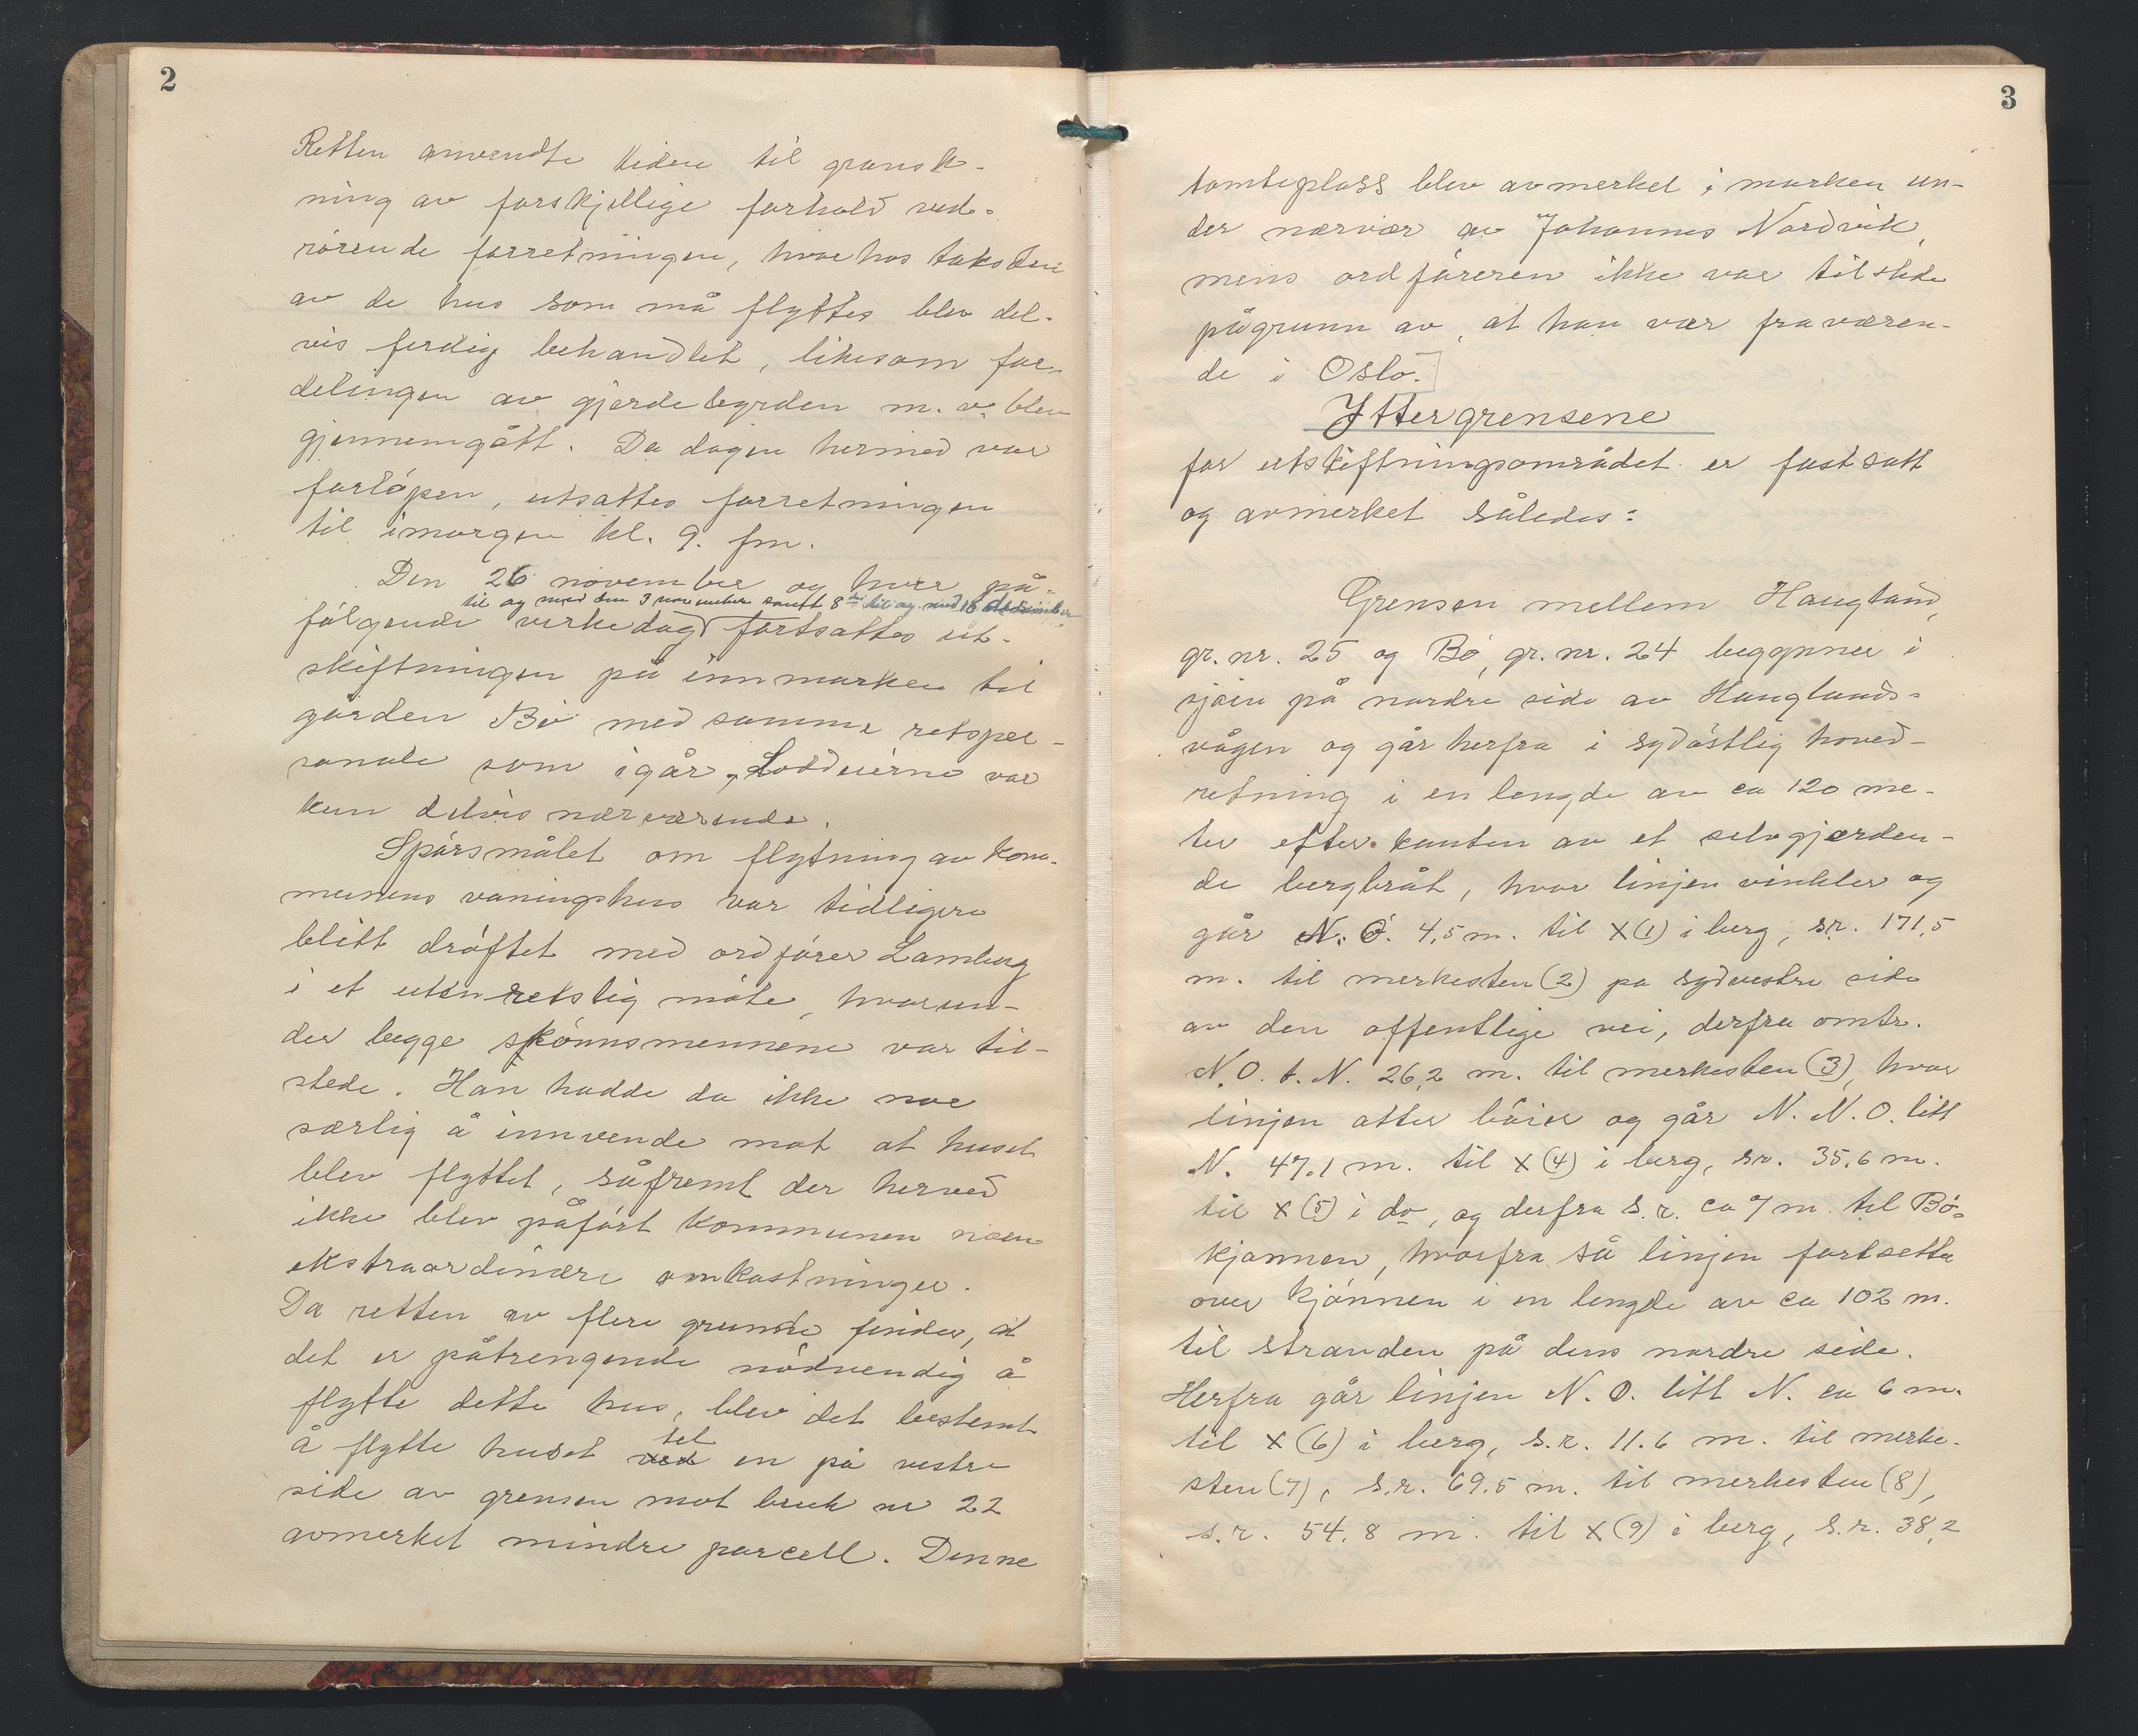 2
Retten anvendte tiden til gransk-
ning av forskjellige forhold ved-
rörende forretningen, hvorhos taksten
av de hus som må flyttes blev del-
vis ferdig behandlet, likesom for-
delingen av gjerdebyrden m. v. blev
gjennemgått. Da dagen hermed var
forlöpen, utsattes forretningen
til imorgen kl. 9. fm.
Den 26 november og hver på-
til og med den 3 november samt 8de til og med 18 desember
fölgende virkedag fortsattes ut-
skiftningen på innmarken til
gården Bö med samme retsper-
sonale som igår. Loddeierne var
kun delvis nærværende.
Spörsmålet om flytning av kom-
munens våningshus var tidligere
blitt dröftet med ordförer Lamberg
i et utenretslig möte, hvorun-
der begge skönnsmennene var til-
stede. Han hadde da ikke noe
særlig å innvende mot at huset
blev flyttet, såfremt der herved
ikke blev påfört kommunen noen
ekstraordinære omkostninger.
Da retten av flere grunde finder, at
det er påtrengende nödvendig å
flytte dette hus, blev det bestemt
til
å flytte huset ved en på vestre
side av grensen mot bruk nr 22
avmerket mindre parcell. Denne
3
tomteplass blev avmerket i marken un-
der nærvær av Johannes Nordvik,
mens ordföreren ikke var tilstede
pågrunn av, at han var fraværen-
de i Oslo.
Yttergrensene
for utskiftningsområdet er fastsatt
og avmerket således:
Grensen mellem Haugland,
gr. nr. 25 og Bö, gr. nr. 24 begynner i
sjöen på nordre side av Hauglands-
vågen og går herfra i sydöstlig hoved-
retning i en lengde av ca 120 me-
ter efter kanten av et selvgjerden-
de bergbråt, hvor linjen vinkler og
går N. Ö. 4,5 m. til X (1) i berg, s.r. 171,5
m. til merkesten (2) på sydvestre side
av den offentlige vei, derfra omtr.
N. O. t. N. 26,2 m. til merkesten (3), hvor
linjen atter böier og går N. N. O. litt
N. 47.1 m. til X (4) i berg, s.r. 35,6 m.
til X (5) i do, og derfra s. r. ca 7 m. til Bö-
kjönnen, hvorfra så linjen fortsetter
over kjönnen i en lengde av ca 102 m.
til stranden på dens nordre side.
Herfra går linjen N. O. litt N. ca 6 m.
til X (6) i berg, s.r. 11.6 m. til merke-
sten (7), s.r. 69.5 m. til merkesten (8),
s.r. 54.8 m. til X (9) i berg, s.r. 38,2